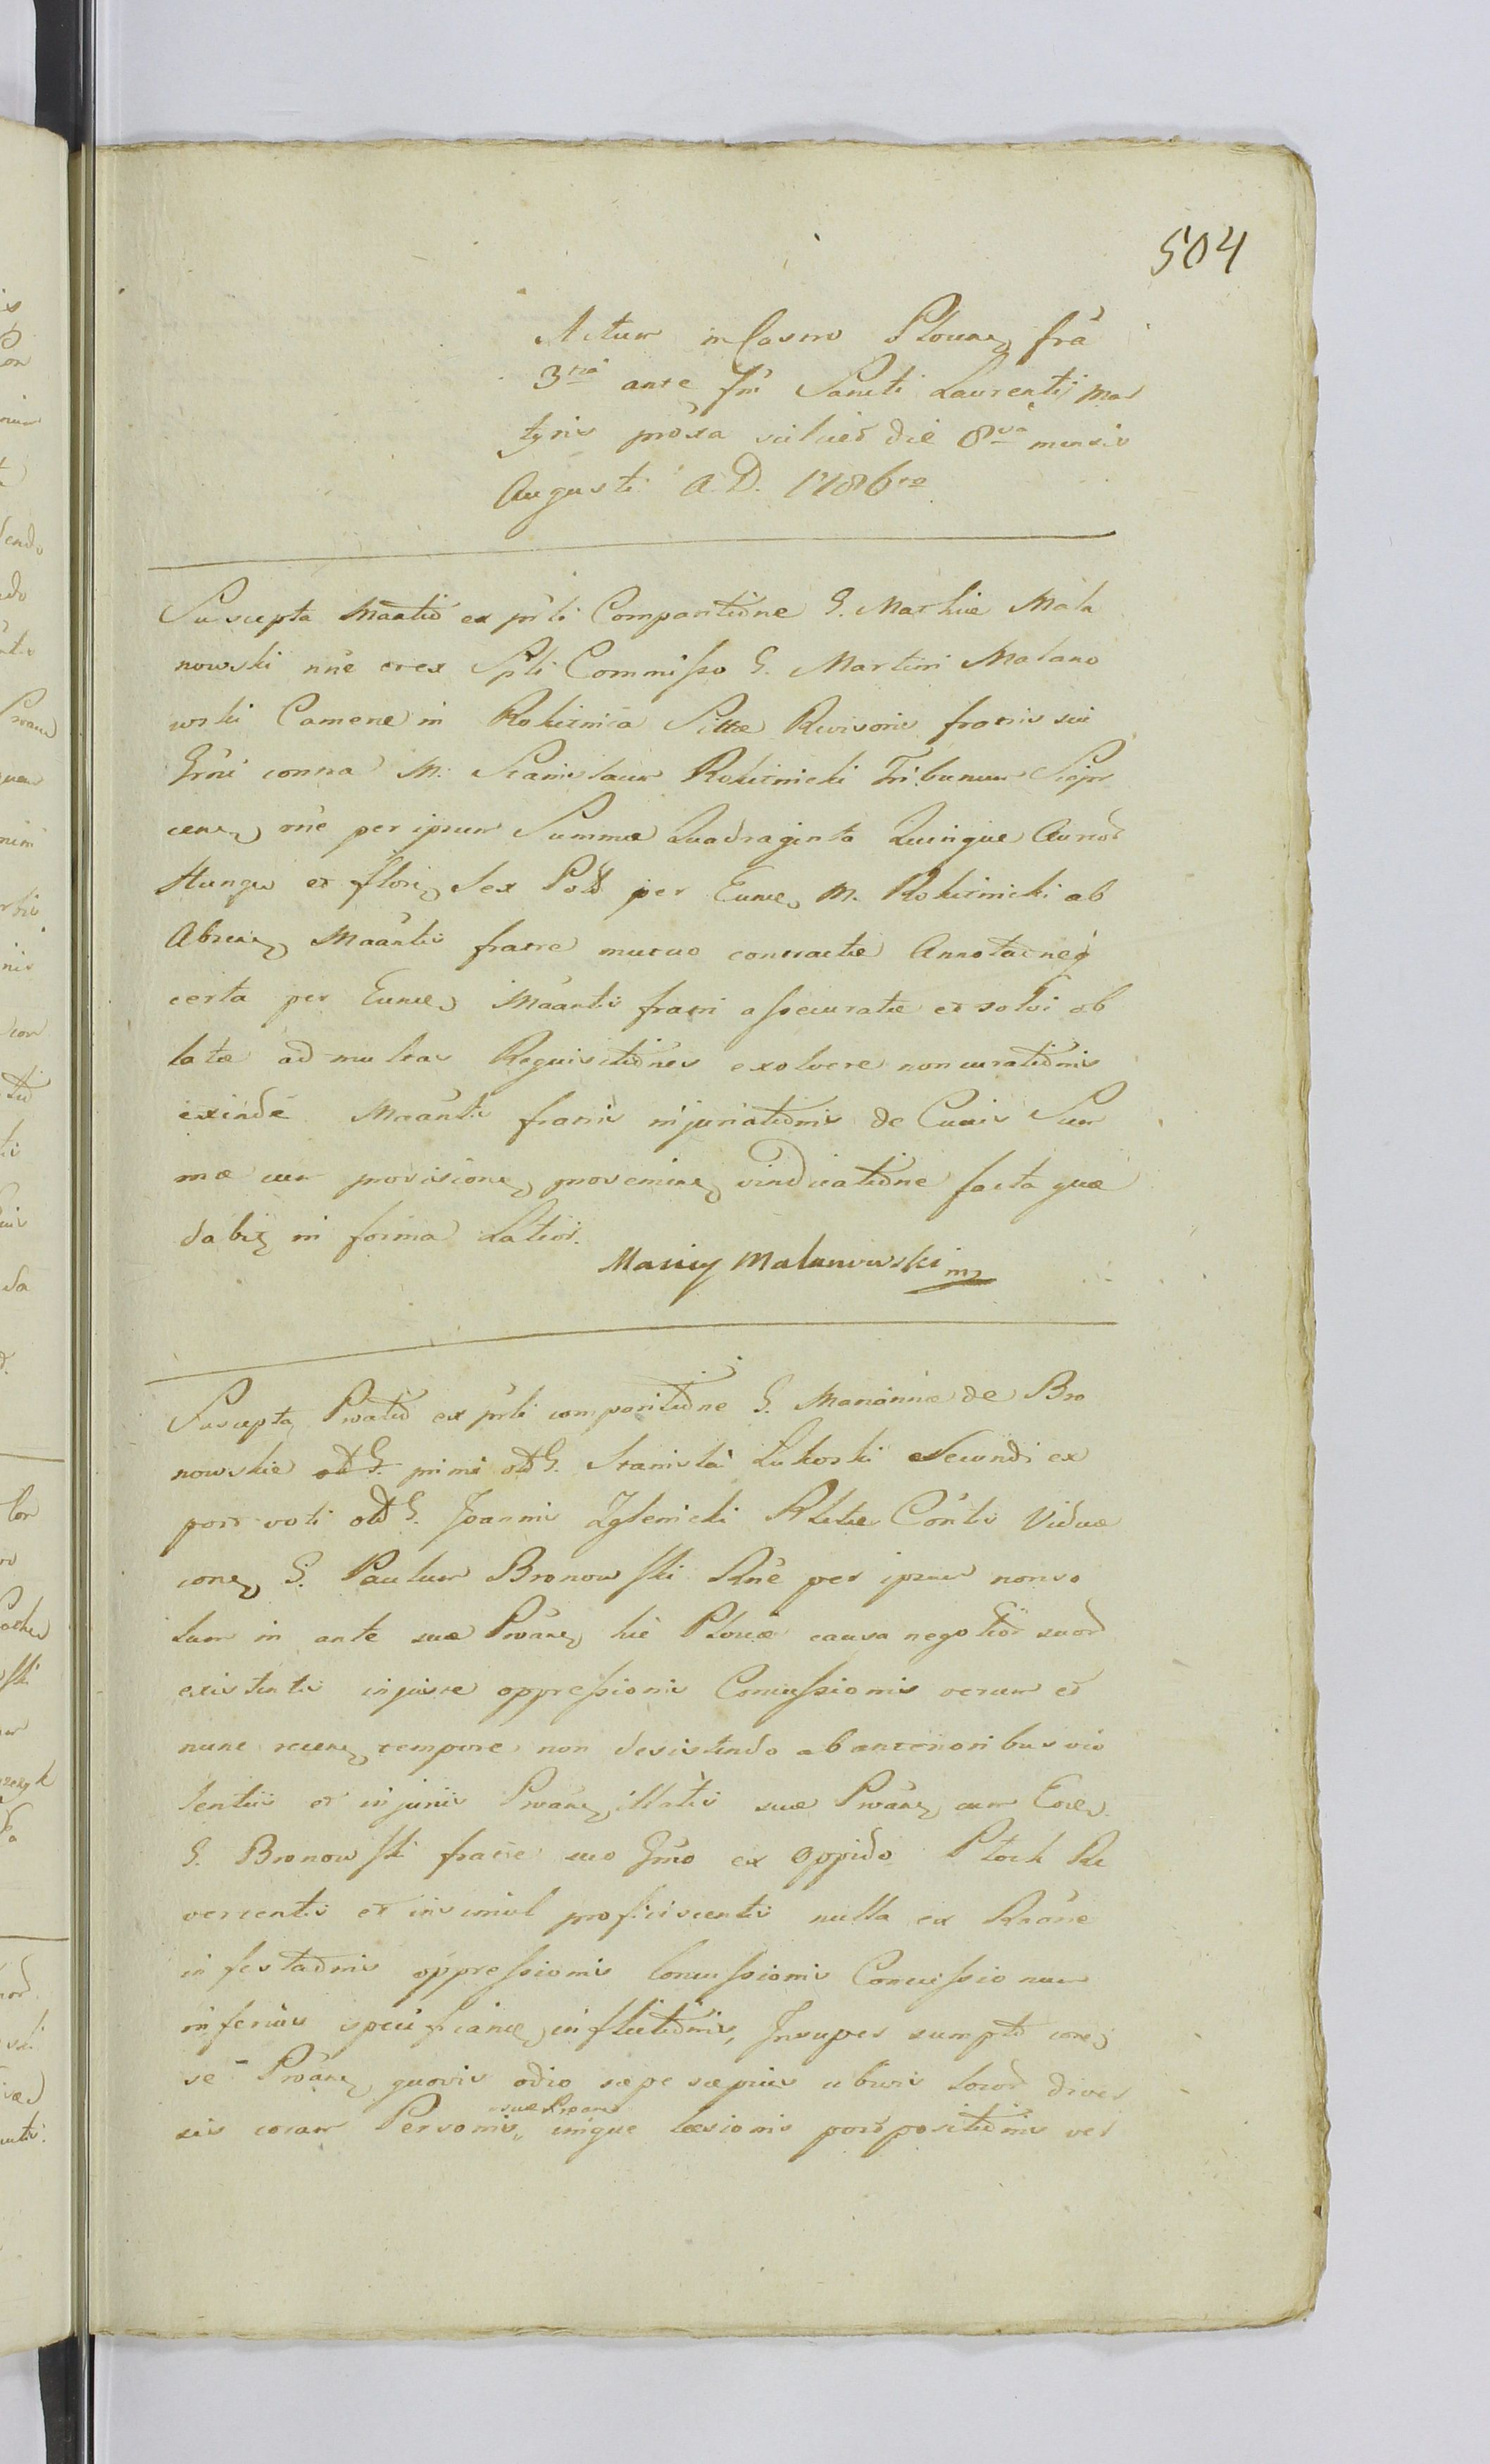 504
Actum in Castro Plocen fra
3tia ante fm Sancti Laurentij Mar
tyris proxa scilicet die 8va mensis
Augusti A. D. 1786to
Suscepta Maãtio ex prsti Comparitione G. Mathiæ Mala
nowski nne et ex Spli Commisso G. Martini Malano
wski Cameræ in Rokitnica Sittæ Revisoris fratris sui
Grni contra M. Stanislaum Rokitnicki Tribunum Sierp
cen rne per ipsum Summæ Quadraginta Quinque Aureor
Hung et flor Sex Pold per Eund M. Rokitnicki ab
Absen Maantis fratre mutuo contractæ Annotatneq
certa per Eund Maantis fratri assecuratæ et solvi ob
latæ ad multas Requisitiones exolvere non curationis
exinde Maantis fratris injuriationis de Cujus Sum
mæ cum provisione proveniend vindicatione facta quæ
dabit in forma Latior.
Maciey Malanowski mp
Suscepta Prãtio ex prsti comparitione G. Mariannæ de Bro
nowskie primi olt G. Stanislai Lukoski Secundi ex
post voti olt G. Joannis Zglenicki Rlictæ Contis Viduæ
contra G. Paulum Bronowski Rne per ipsum non so
lum in ante suæ Proan hic Plociæ causa negotior suor
existentis injuste oppressionis Concussionis verum et
nunc recen tempore non desistendo ab anterioribus vio
lentiis et injuriis Proan illatis suæ Proan cum Eod
G. Bronowski fratre suo Gmo ex Oppido Plock Re
vertentis et insimul proficiscentis nulla ex Raone
infestaonis oppressionis Concussionis Concussionum
inferius specificand inflictionis, Insuper sumpto contra
se Proan quovis odio sæpe sæpius ubivis locor diver
sis coram Personis suæ Proan ejusque læsionis postpositionis vel